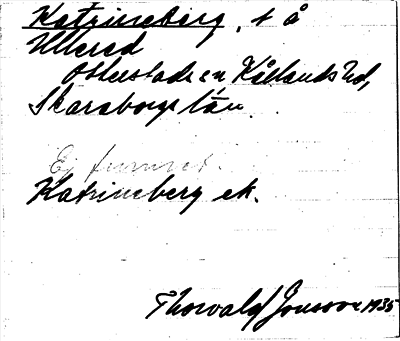 Katrineberg, t å
Ullerud
Otterstads sn Kållands hd,
Skaraborgs län.
Ej funnet.
Katrineberg ek.
Thorvald Jonsson 1935